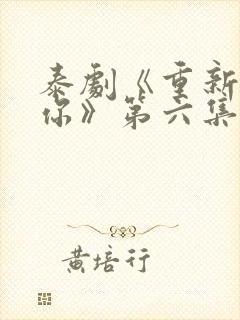 泰劇《重新
你》第六集
黃培行